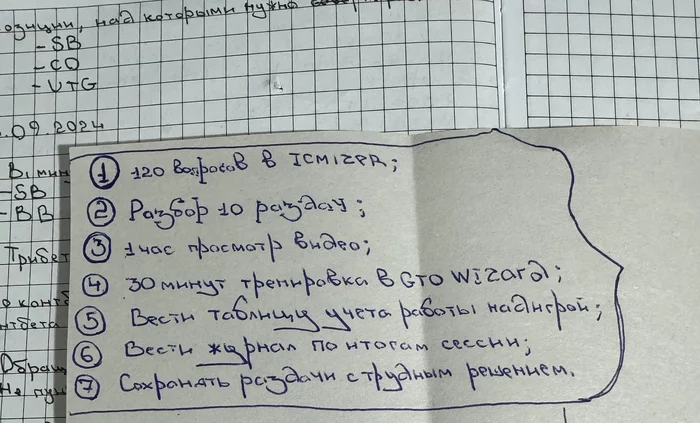 озиции, над которыми нужно
- SB
- CO
- UTG
.09.2024
-SB
- BB
① 120 вопросов в ICMIZER;
② Разбор 10 раздач;
③ 1 час просмотр видео;
④ 30 минут тренировка в GTO Wizard;
⑤ Вести таблицу учета работы над игрой;
⑥ Вести журнал по итогам сессии;
⑦ Сохранять раздачи с трудным решением.